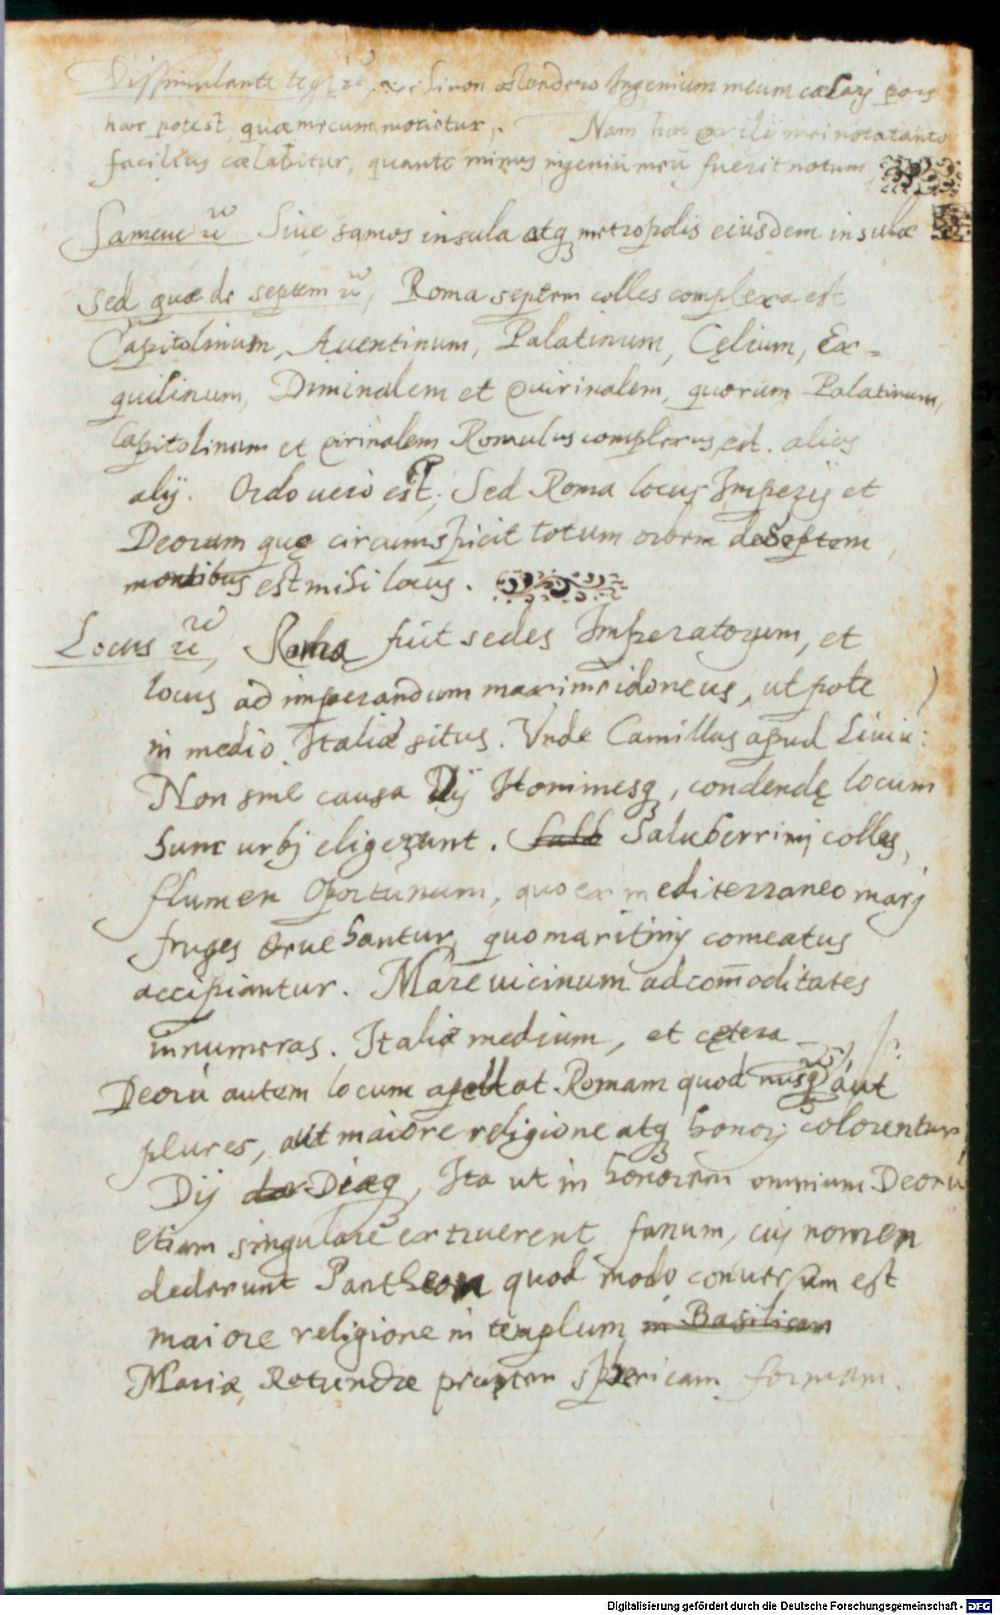 Dissimulante tegi etc, Si non ostendero Ingenium meum cælarj pars
hæc potest, quæ mecum morietur. Nam hæc exilij mei nota tanto
facilius cælabitur, quanto minus ingeniū meū fuerit notum
Sameue etc Siue samos insula atq₃ metropolis eiusdem insulæ
Sed quæ de septem etc, Roma septem colles complexa est
Capitolinum, Auentinum, Palatinum, Cęlium, Ex=
quilinum, Diminalem et Quirinalem, quorum Palatinum,
Capitolinum et Qirinalem Romulus complexus est. alios
alij. Ordo uero est, Sed Roma locus Imperij et
Deorum quę circumspicit totum orbem de Septem
montibus est mihi locus.
Locus etc, Roma fuit sedes Imperatorum, et
locus ad imperandum maxime idoneus, ut pote
in medio Italiæ situs. Vnde Camillus apud Liuiū:
Non sine causa Dij Hominesq₃, condendę locum
hunc urbj eligerunt. Salb Saluberrimj colles,
flumen Oportunum, quo ex mediterraneo marj
fruges deuehantur, quo maritimj comeatus
accipiantur. Mare uicinum ad com̄oditates
innumeras. Italiæ medium, et cętera
Deorū autem locum apellat Romam quod nusq aut
plures, aut maiore religione atq₃ honorj colorentur
Dij da Deæq₃, Ita ut in honorem omnium Deorū
etiam singulare extruerent fanum, cuj nomen
dederunt Pantheon quod modo conuersum est
maiore religione in templum in Basilicam
Mariæ Rotundæ propter sphericam formam.
Digitalisierung gefördert durch die Deutsche Forschungsgemeinschaft - DFG